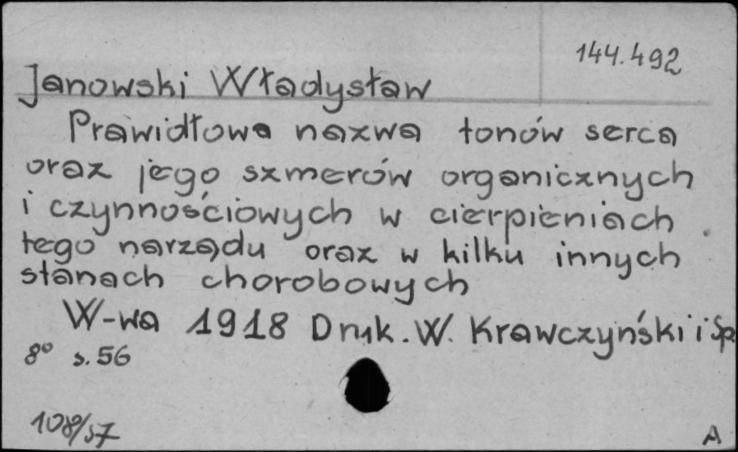 144.492
Janowski Władysław
Prawidłowa nazwa tonów serca
oraz jego szmerów organicznych
i czynnościowych w cierpieniach
tego narządu oraz w kilku innych
stanach chorobowych
W-wa 1918 Druk. W. Krawczyński i Sp
8° s. 56
108/57
A